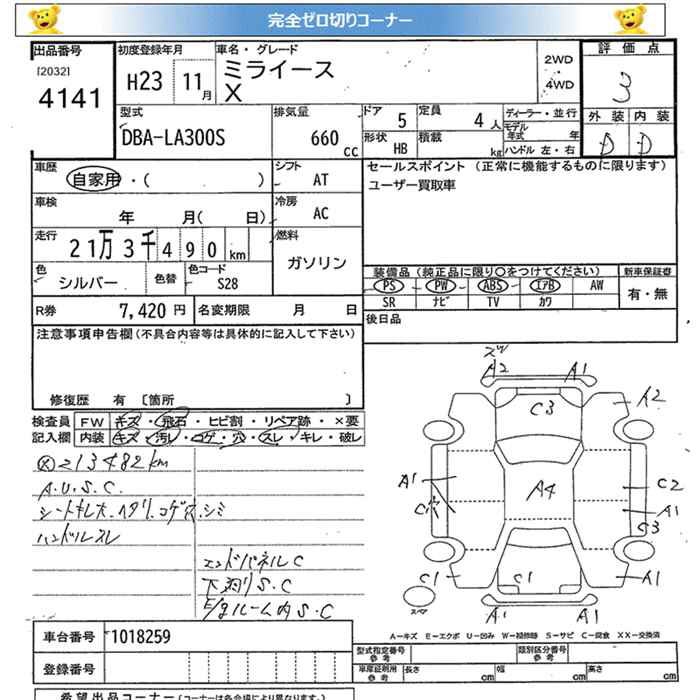 完全ゼロ切りコーナー
出品番号 初度登録年月 車名・グレード 評価点
[2032] 2WD
4141 H23 11月 ミライース X 4WD 3
型式 排気量 ドア 5 定員 4人 ディーラー・並行 外装 内装
DBA-LA300S 660 cc 形状 HB 積載 kg モデル年式 年 D D
ハンドル 左・右
車歴 シフト セールスポイント (正常に機能するものに限ります)
自家用・( ) AT ユーザー買取車
車検 冷房
年 月( 日) AC
走行 燃料
21万3千490km ガソリン
色 シルバー 色替 色コード S28
装備品 (純正品に限り○をつけてください) 新車保証書
PS PW ABS エアB AW 有・無
SR ナビ TV カワ
R券 7,420円 名変期限 月 日
後日品
注意事項申告欄 (不具合内容等は具体的に記入して下さい)
修復歴 有 [箇所 ]
検査員 FW キズ・飛石・ヒビ割・リペア跡・×要
記入欄 内装 キズ・汚レ・コゲ・穴・スレ・キレ・破レ
213482km
A.U.S.C.
ハンドルスレ
エンドパネルC
下廻りS.C
ルーム内S.C
A2 A1
C3 A2
A1 A4 C2
A1
C3
C1 C1 A1
スペア A1 A1
A-キズ E-エクボ U-凹み W-補修跡 S-サビ C-腐食 XX-交換済
車台番号 1018259
型式指定番号 参考 類別区分番号 参考
登録番号
車庫証明用 参考 長さ cm 幅 cm 高さ cm
希望出品コーナー (コーナーは各会場により異なります)